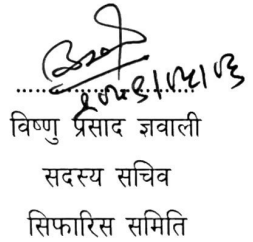 विष्णु प्रसाद ज्ञवाली
सदस्य सचिव
सिफारिस समिति